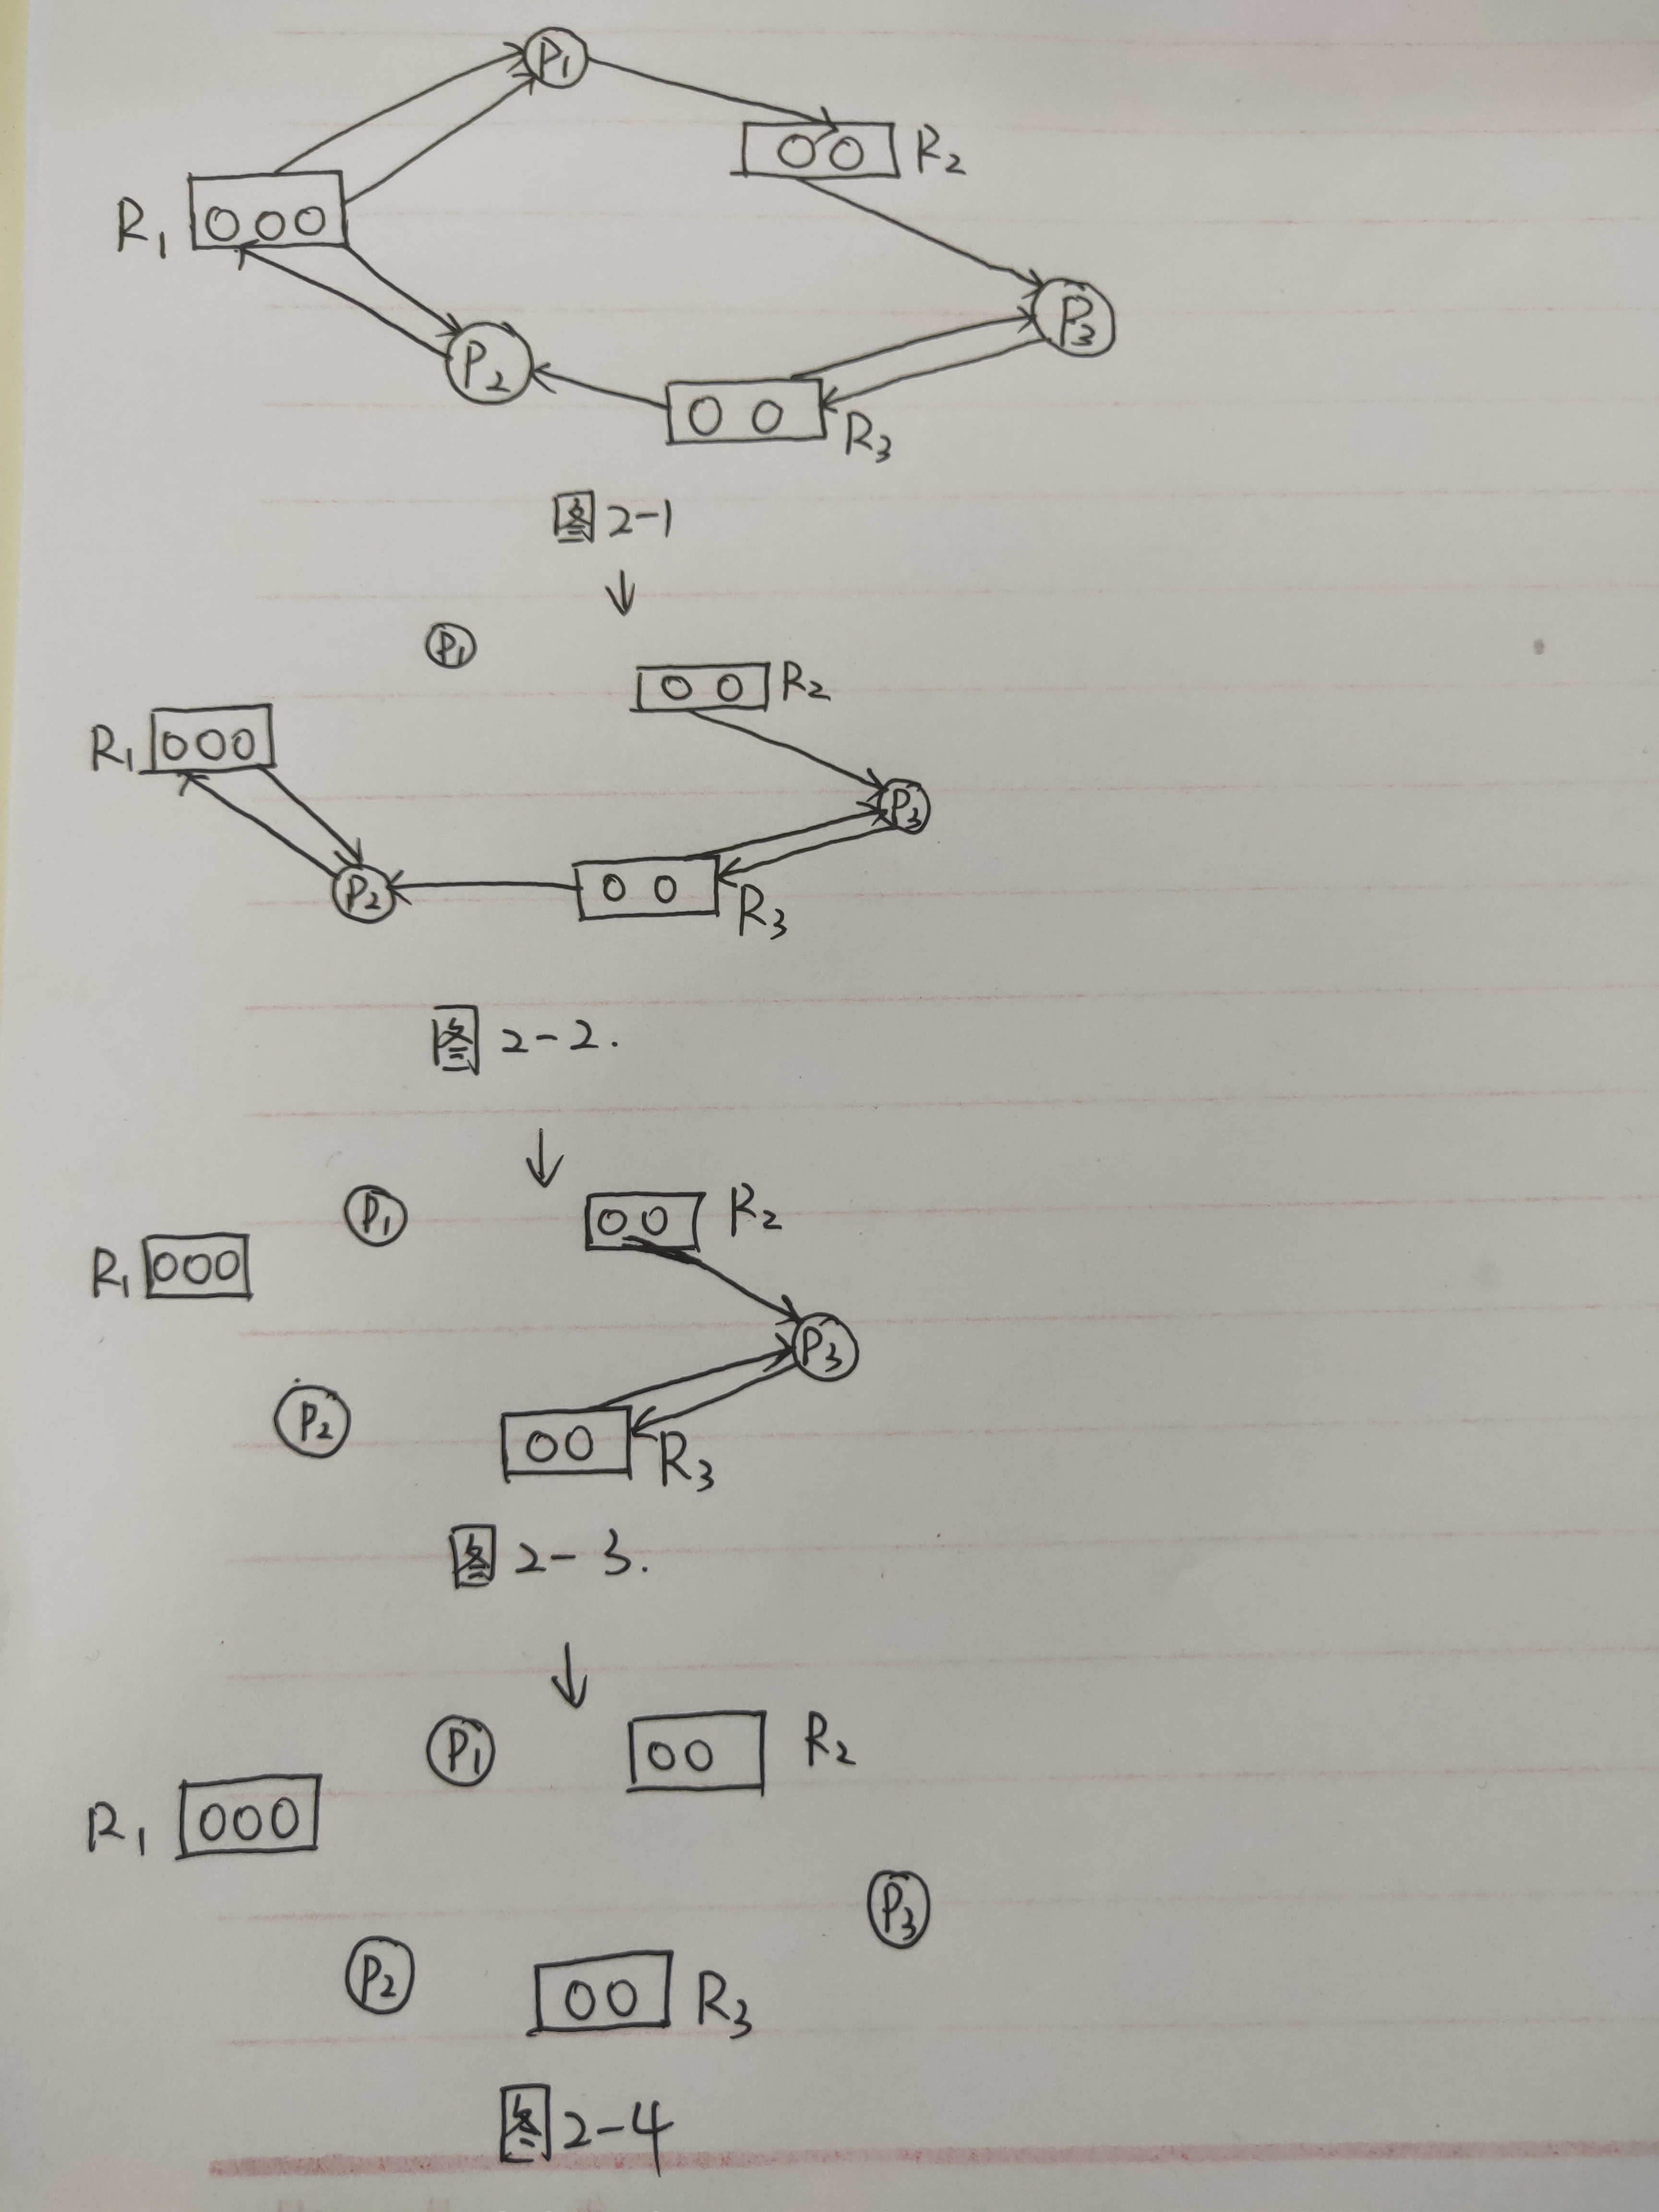 P1
R2
R1
P3
P2
R3
图2-1
P1
R2
R1
P3
P2
R3
图 2-2.
P1
R2
R1
P3
P2
R3
图 2-3.
P1
R2
R1
P3
P2
R3
图 2-4